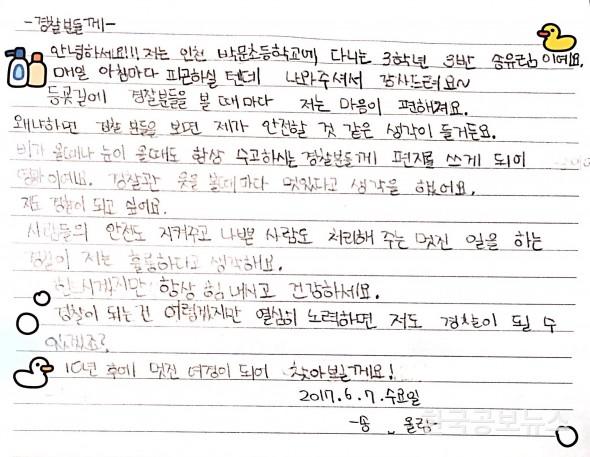 -경찰분들께-
안녕하세요!!! 저는 인천 박문초등학교에 다니는 3학년 3반 송유림이에요.
매일 아침마다 피곤하실 텐데 나와주셔서 감사드려요~
등굣길에 경찰분들을 볼 때마다 저는 마음이 편해져요.
왜냐하면 경찰 분들을 보면 제가 안전할 것 같은 생각이 들거든요.
비가 올때나 눈이 올때도 항상 수고하시는 경찰분들께 편지를 쓰게 되어
영광이에요. 경찰관 옷을 볼때마다 멋있다고 생각을 했어요.
저도 경찰이 되고 싶어요.
사람들의 안전도 지켜주고 나쁜 사람도 처리해 주는 멋진 일을 하는
경찰이 저는 훌륭하다고 생각해요.
힘드시겠지만 항상 힘내시고 건강하세요.
경찰이 되는건 어렵겠지만 열심히 노력하면 저도 경찰이 될 수
있겠죠?
10년 후에 멋진 여경이 되어 찾아뵐게요!
2017.6.7.수요일
-송 올림-
한국공보뉴스